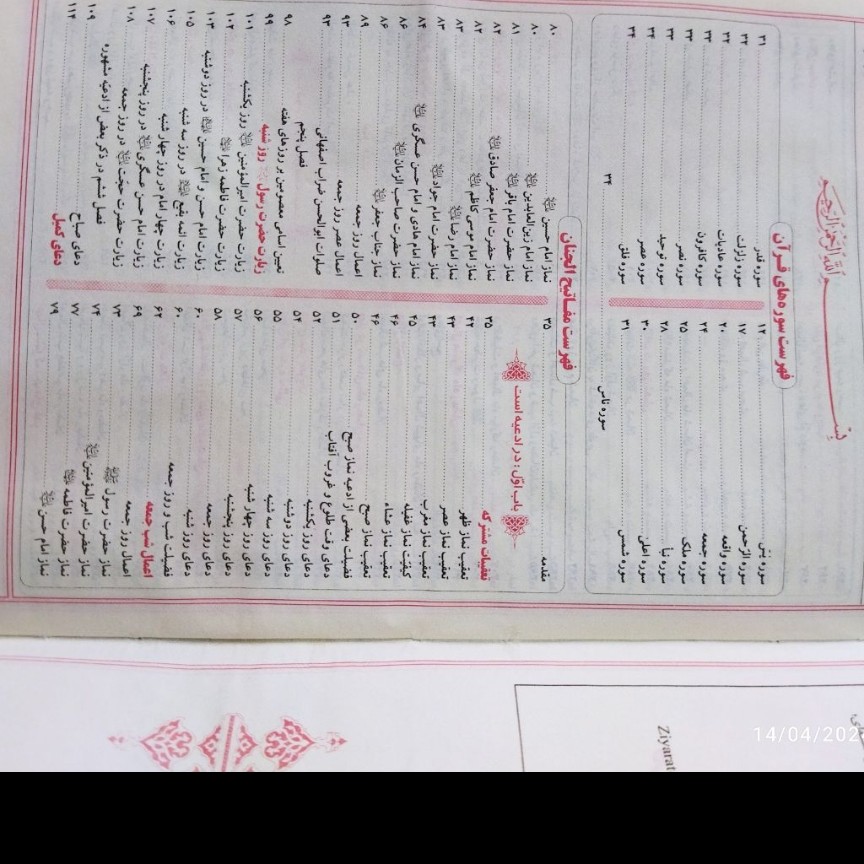 بسم الله الرحمن الرحیم
فهرست سوره‌های قرآن
سوره یس ۱۲
سوره الرحمن ۱۷
سوره واقعه ۲۰
سوره جمعه ۲۴
سوره ملک ۲۵
سوره نبأ ۲۸
سوره اعلی ۳۰
سوره شمس ۳۱
سوره قدر ۳۱
سوره زلزلت ۳۲
سوره عادیات ۳۲
سوره کافرون ۳۳
سوره نصر ۳۳
سوره توحید ۳۳
سوره عصر ۳۴
سوره فلق ۳۴
سوره ناس ۳۴
فهرست مفاتیح الجنان
مقدمه ۳۵
باب اوّل : در ادعیه است
تعقیبات مشترکه ۳۵
تعقیب نماز ظهر ۴۲
تعقیب نماز عصر ۴۳
تعقیب نماز مغرب ۴۳
کیفیّت نماز غفیله ۴۵
تعقیب نماز عشاء ۴۶
تعقیب نماز صبح ۴۶
فضیلت بعضی از ادعیه نماز صبح ۵۰
دعای وقت طلوع و غروب آفتاب ۵۱
دعای روز یکشنبه ۵۲
دعای روز دوشنبه ۵۴
دعای روز سه شنبه ۵۵
دعای روز چهار شنبه ۵۶
دعای روز پنجشنبه ۵۷
دعای روز جمعه ۵۸
دعای روز شنبه ۶۰
فضیلت شب و روز جمعه ۶۰
اعمال شب جمعه ۶۲
اعمال روز جمعه ۶۹
نماز حضرت رسول ۷۳
نماز حضرت امیرالمؤمنین ۷۴
نماز حضرت فاطمه ۷۷
نماز امام حسن ۷۹
نماز امام حسین ۸۰
نماز امام زین‌العابدین ۸۰
نماز حضرت امام باقر ۸۱
نماز حضرت امام جعفر صادق ۸۲
نماز امام موسی کاظم ۸۲
نماز امام رضا ۸۳
نماز حضرت امام جواد ۸۳
نماز امام هادی و امام حسن عسگری ۸۴
نماز حضرت صاحب الزمان ۸۶
نماز جناب جعفر ۸۶
اعمال روز جمعه ۸۹
اعمال عصر روز جمعه ۹۳
صلوات ابوالحسن ضراب اصفهانی ۹۳
فصل پنجم
تعیین اسامی معصومین بر روزهای هفته ۹۸
زیارت حضرت رسول روز شنبه ۹۹
زیارت حضرت امیرالمؤمنین روز یکشنبه ۱۰۱
زیارت حضرت فاطمه زهرا ۱۰۲
زیارت امام حسن و امام حسین در روز دوشنبه ۱۰۳
زیارت ائمه بقیع در روز سه شنبه ۱۰۵
زیارت چهار امام در روز چهار شنبه ۱۰۶
زیارت امام حسن عسگری در روز پنجشنبه ۱۰۷
زیارت حضرت حجّت در روز جمعه ۱۰۸
فصل ششم در ذکر بعضی از ادعیّه مشهوره
دعای صباح ۱۰۹
دعای کمیل ۱۱۴
Ziyarat
14/04/202